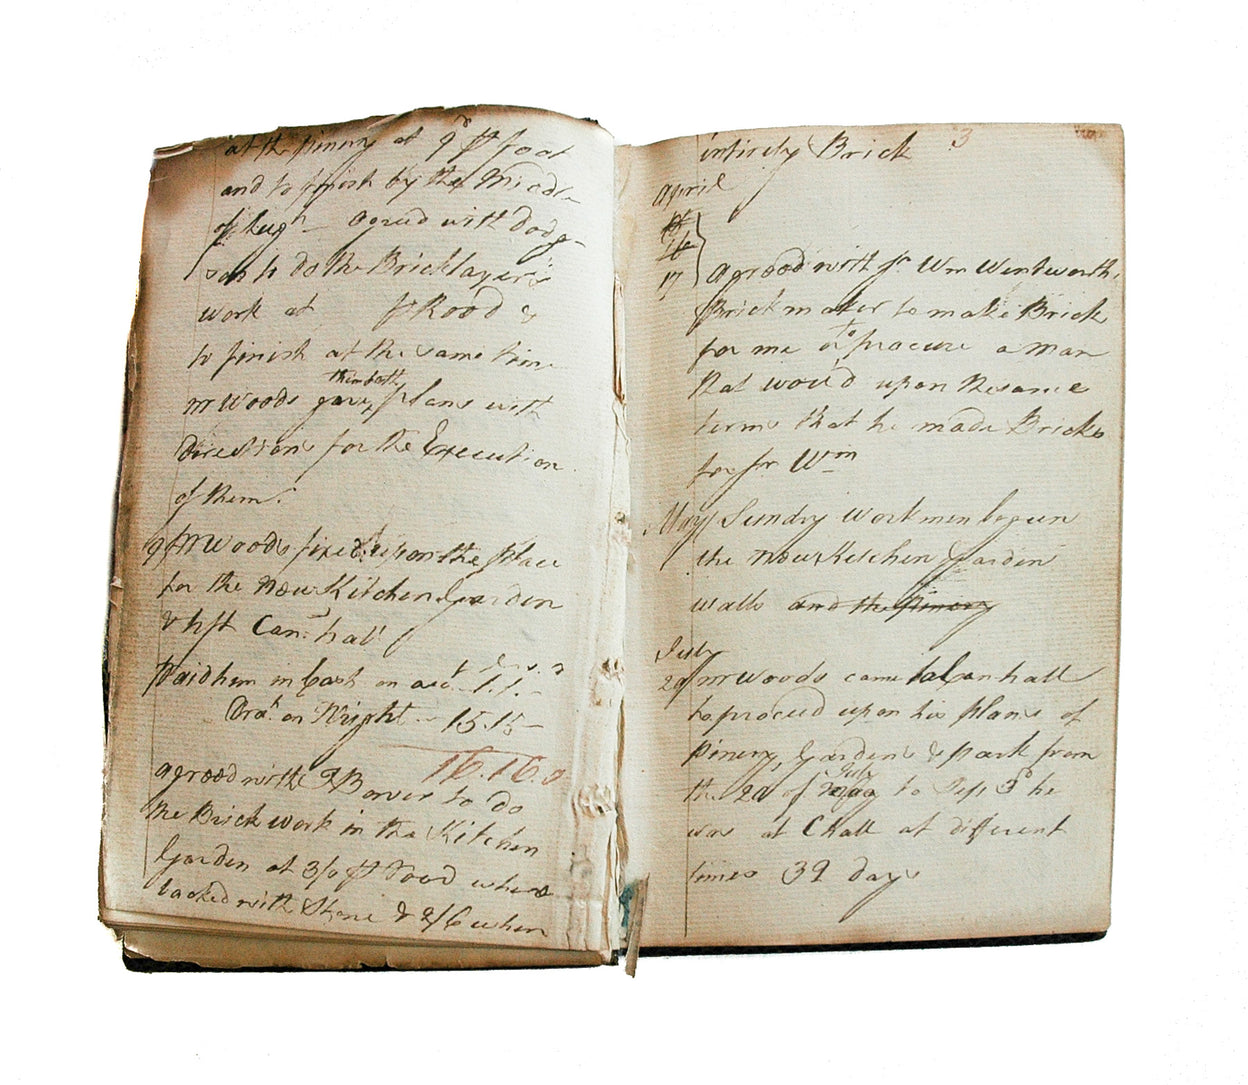 at the pinery at 9d pr foot
and to finish by the Middle
of Augn - agreed with Dodg-
son to do the Bricklayer's
work at pr Rood &
to finish at the same time
Mr Woods gave them both plans with
direction for the Execution
of them.
9 Mr Woods fixed upon the place
for the New Kitchen Garden
& left Can: hall
paid him in Cash on acct 1.1.-
Dra: on Wright - 15.15-
16.16.0
agreed with B Bower to do
the Brick work in the Kitchen
Garden at 3/0 pr rood where
backed with Stone & 2/6 when
3
intirely Brick
April
16
17 agreed with Sr Wm Wentworth's
Brickmaker to make Brick
for me or to procure a man
that would upon the same
terms that he made Bricks
for Sr Wm
May Sundry workmen begun
the New Kitchen Garden
walls and the pinery
July
20 Mr Woods came to Canhall
to proceed upon his plans of
Pinery, Garden & park from
the 20 of July to Sep 3d he
was at CHall at different
times 39 days